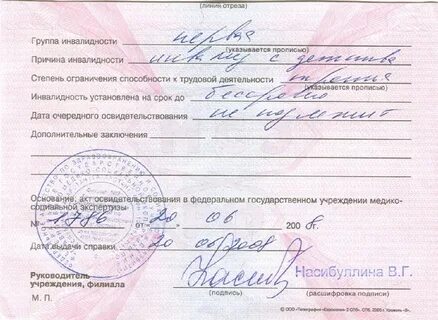 (линия отреза)
Группа инвалидности первая
(указывается прописью)
Причина инвалидности инвалид с детства
Степень ограничения способности к трудовой деятельности третья
(указывается прописью)
Инвалидность установлена на срок до бессрочно
Дата очередного освидетельствования не подлежит
Дополнительные заключения
Основание: акт освидетельствования в федеральном государственном учреждении медико-
социальной экспертизы
№ 1786 от 20 06 2008г.
Дата выдачи справки 20 06 2008
Руководитель
учреждения, филиала
Насибуллина В.Г.
М. П. (подпись) (расшифровка подписи)